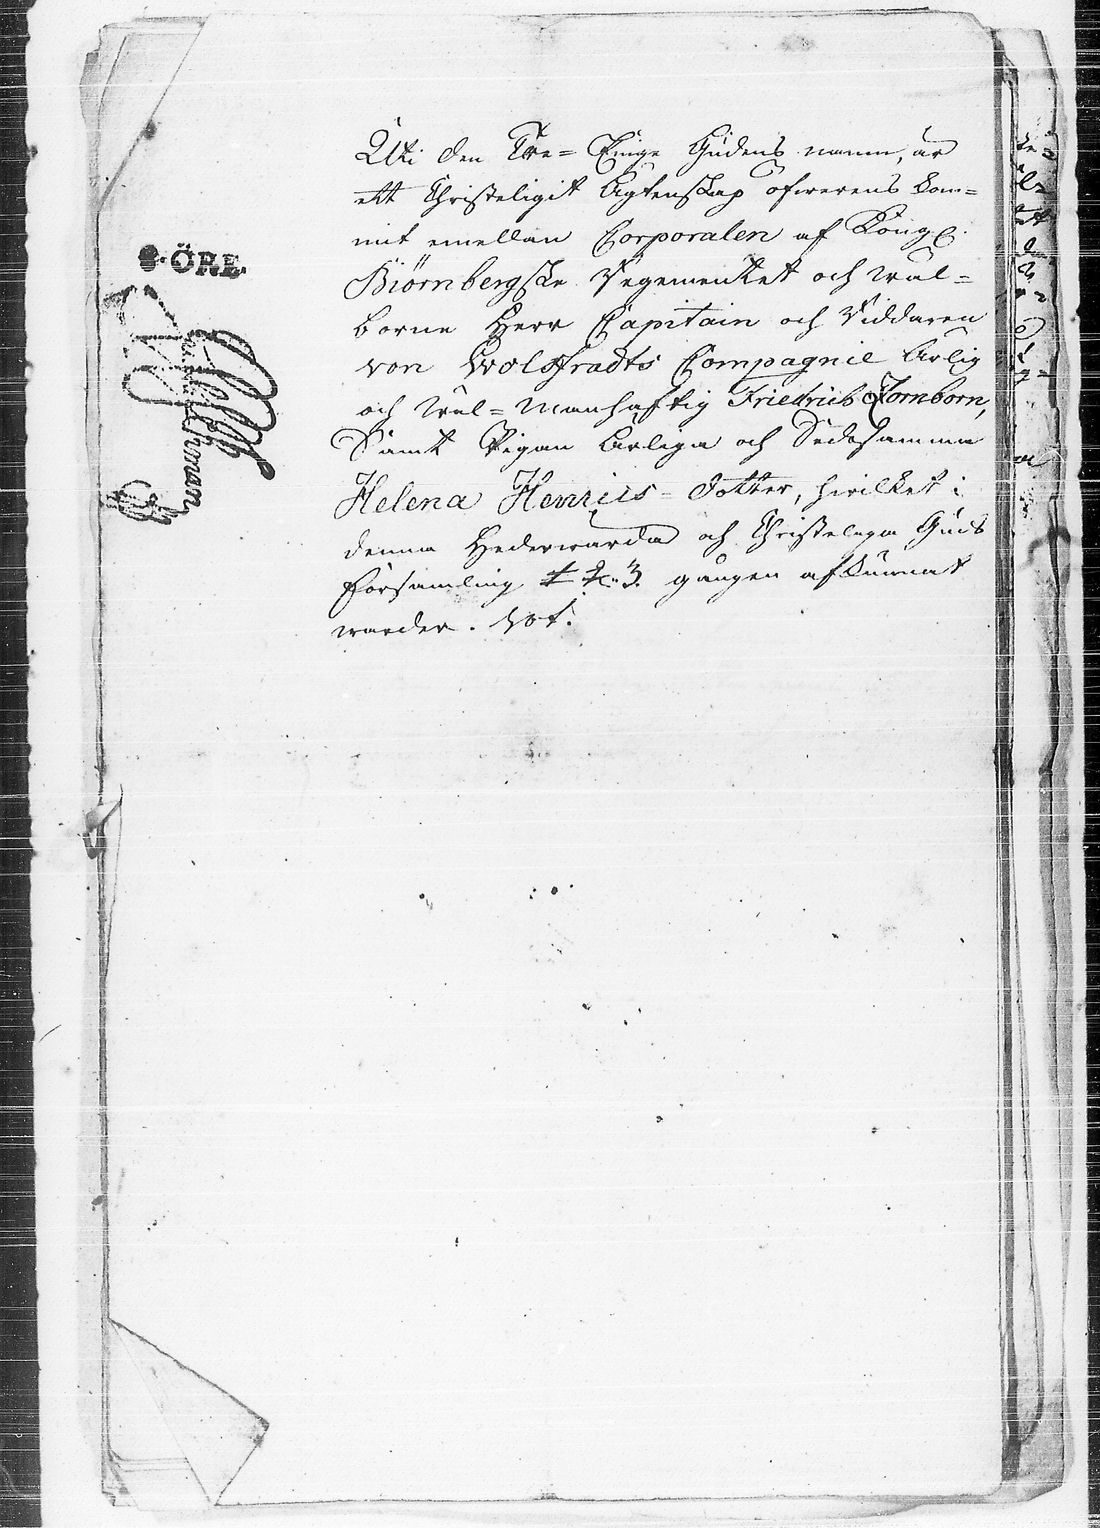 8. ÖRE.
Uti den Tre= Eniga Gudens namn, är
ett Christeligit Ägtenskap öfwerens kom=
mit emellan Corporalen af Kongl.
Biörnbergske Regementet och wäl=
borne Herr Capitain och Riddaren
von Wolffradts Compagnie Ärlig
och wäl=Manhaftig Friedrich Kornborn,
Samt Pigan Ärliga och Sedesamma
Helena Henrics=Dotter, hwilket i
denna Hederwärda och Christeliga Guds
församling 1. 2. 3. gången afkunnat
warder.